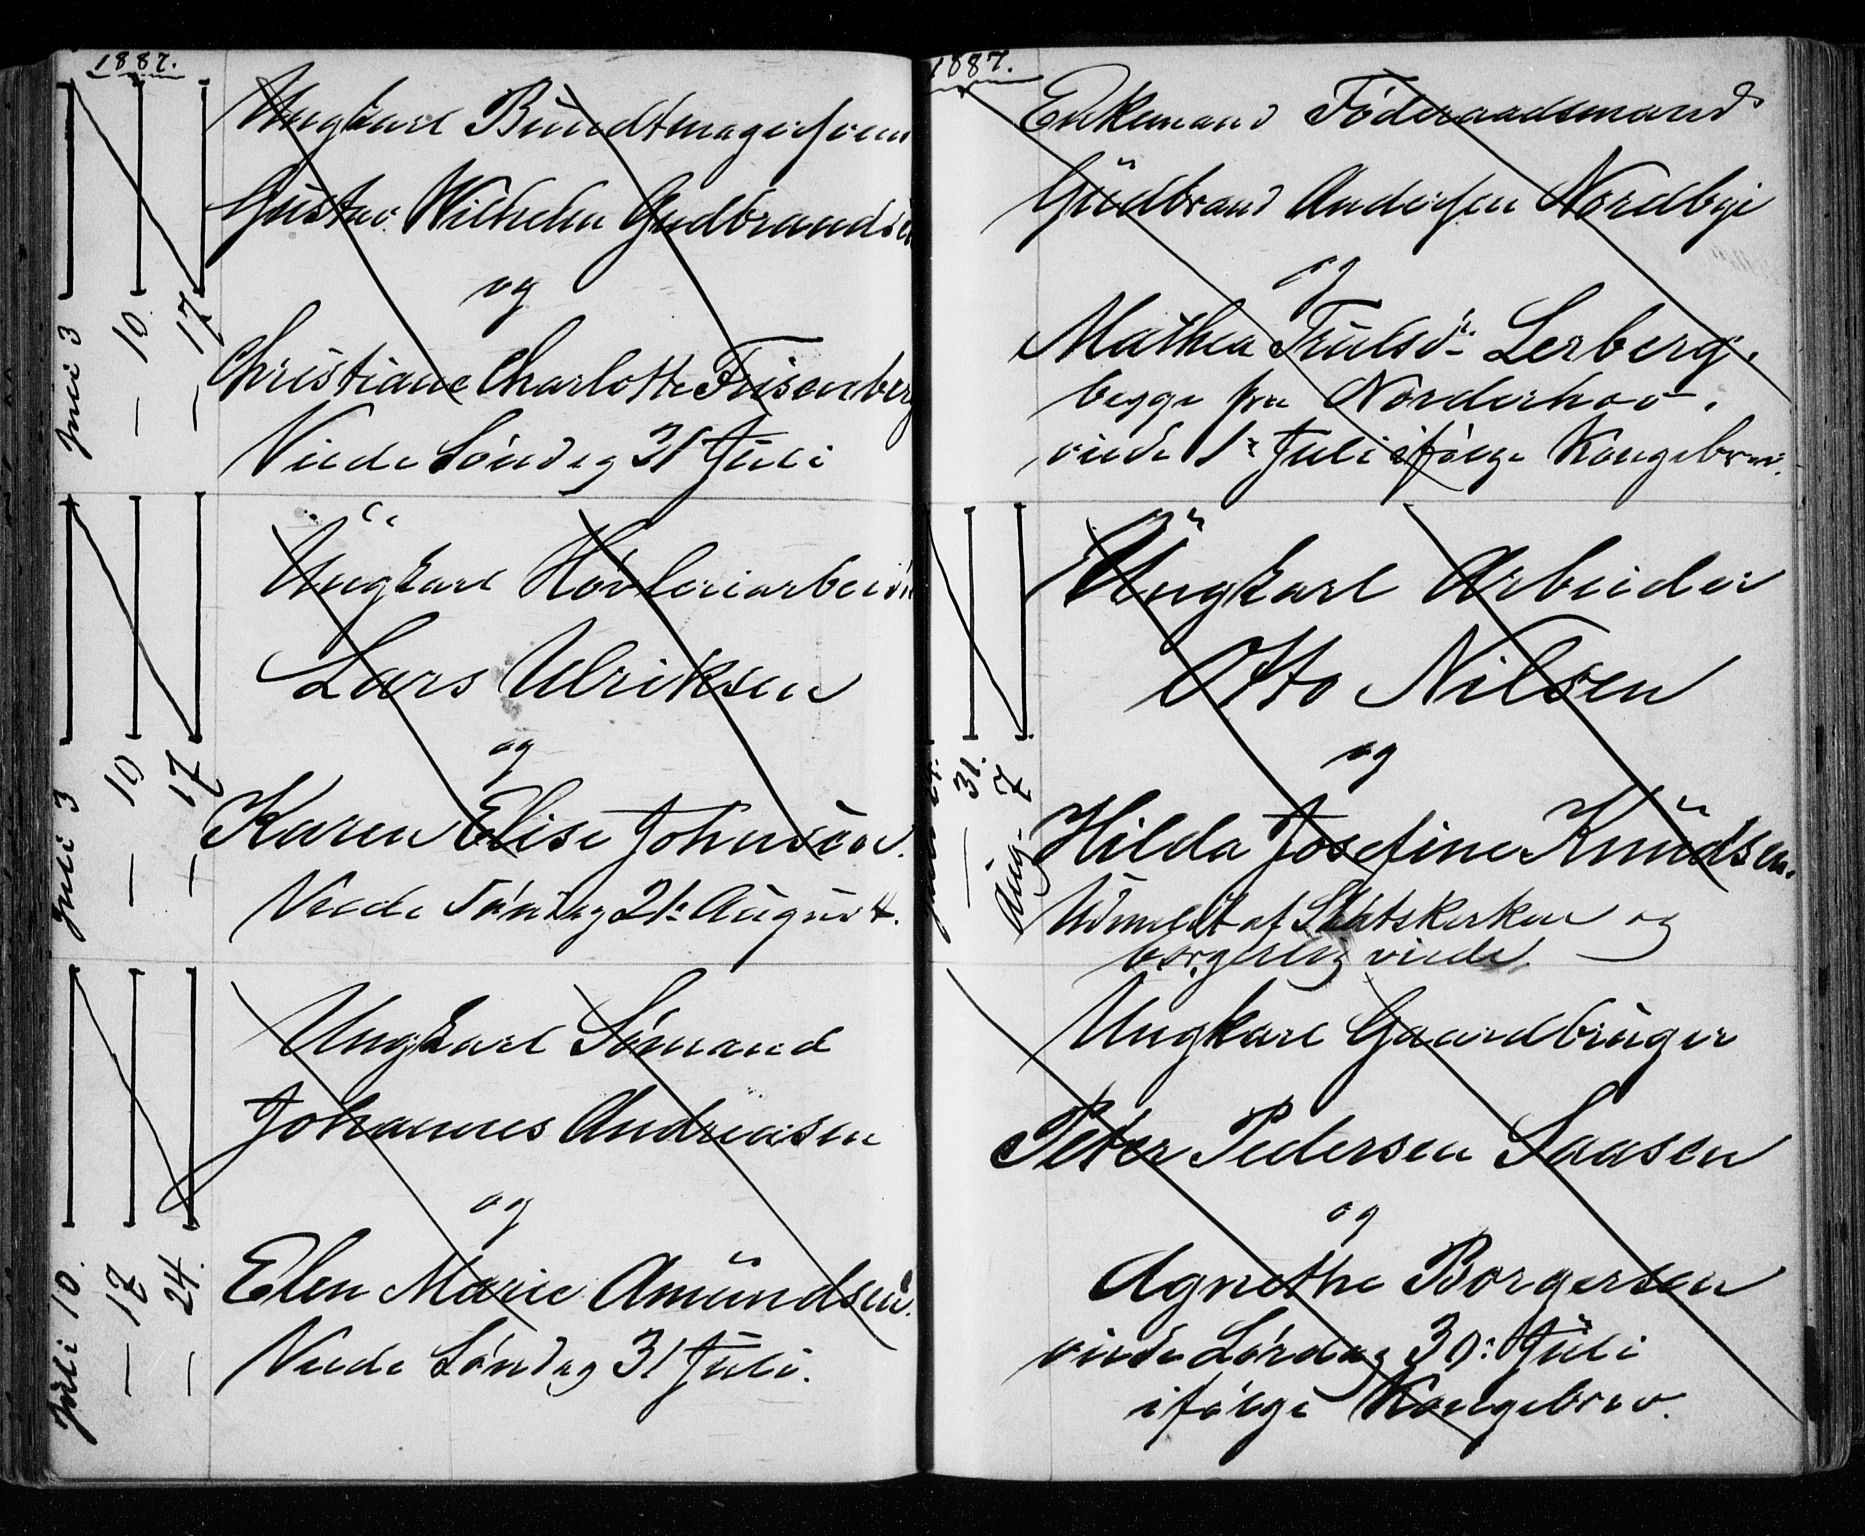 1887.
Ungkarl Bundtmagersvend
Gustav Wilhelm Gudbrandsen
og
Christiane Charlotte Frisenberg
Viede Søndag 31 Juli
Juli 3
— 10
— 17
Ungkarl Høvleriarbeider
Lars Ulriksen
og
Karen Elise Johnsen.
Viede Søndag 21: August.
Juli 3
— 10
— 17
Ungkarl Sømand
Johannes Andreasen
og
Elen Marie Amundsen.
Viede Søndag 31 Juli.
Juli 10.
— 17
— 24.
1887.
Enkemand Føderaadsmand
Gudbrand Andersen Nordbye
og
Mathea Trulsd: Lerberg.
begge fra Norderhov.
viede 1: Juli ifølge Kongebrev.
Ungkarl Arbeider
Otto Nilsen
og
Hilda Josefine Knudsen.
Udmeldt af Statskirken og
borgerlig viede
— 31.
Aug. 7
Ungkarl Gaardbruger
Peter Pedersen Saasen
og
Agnethe Borgersen
viede Lørdag 30: Juli
ifølge Kongebrev.